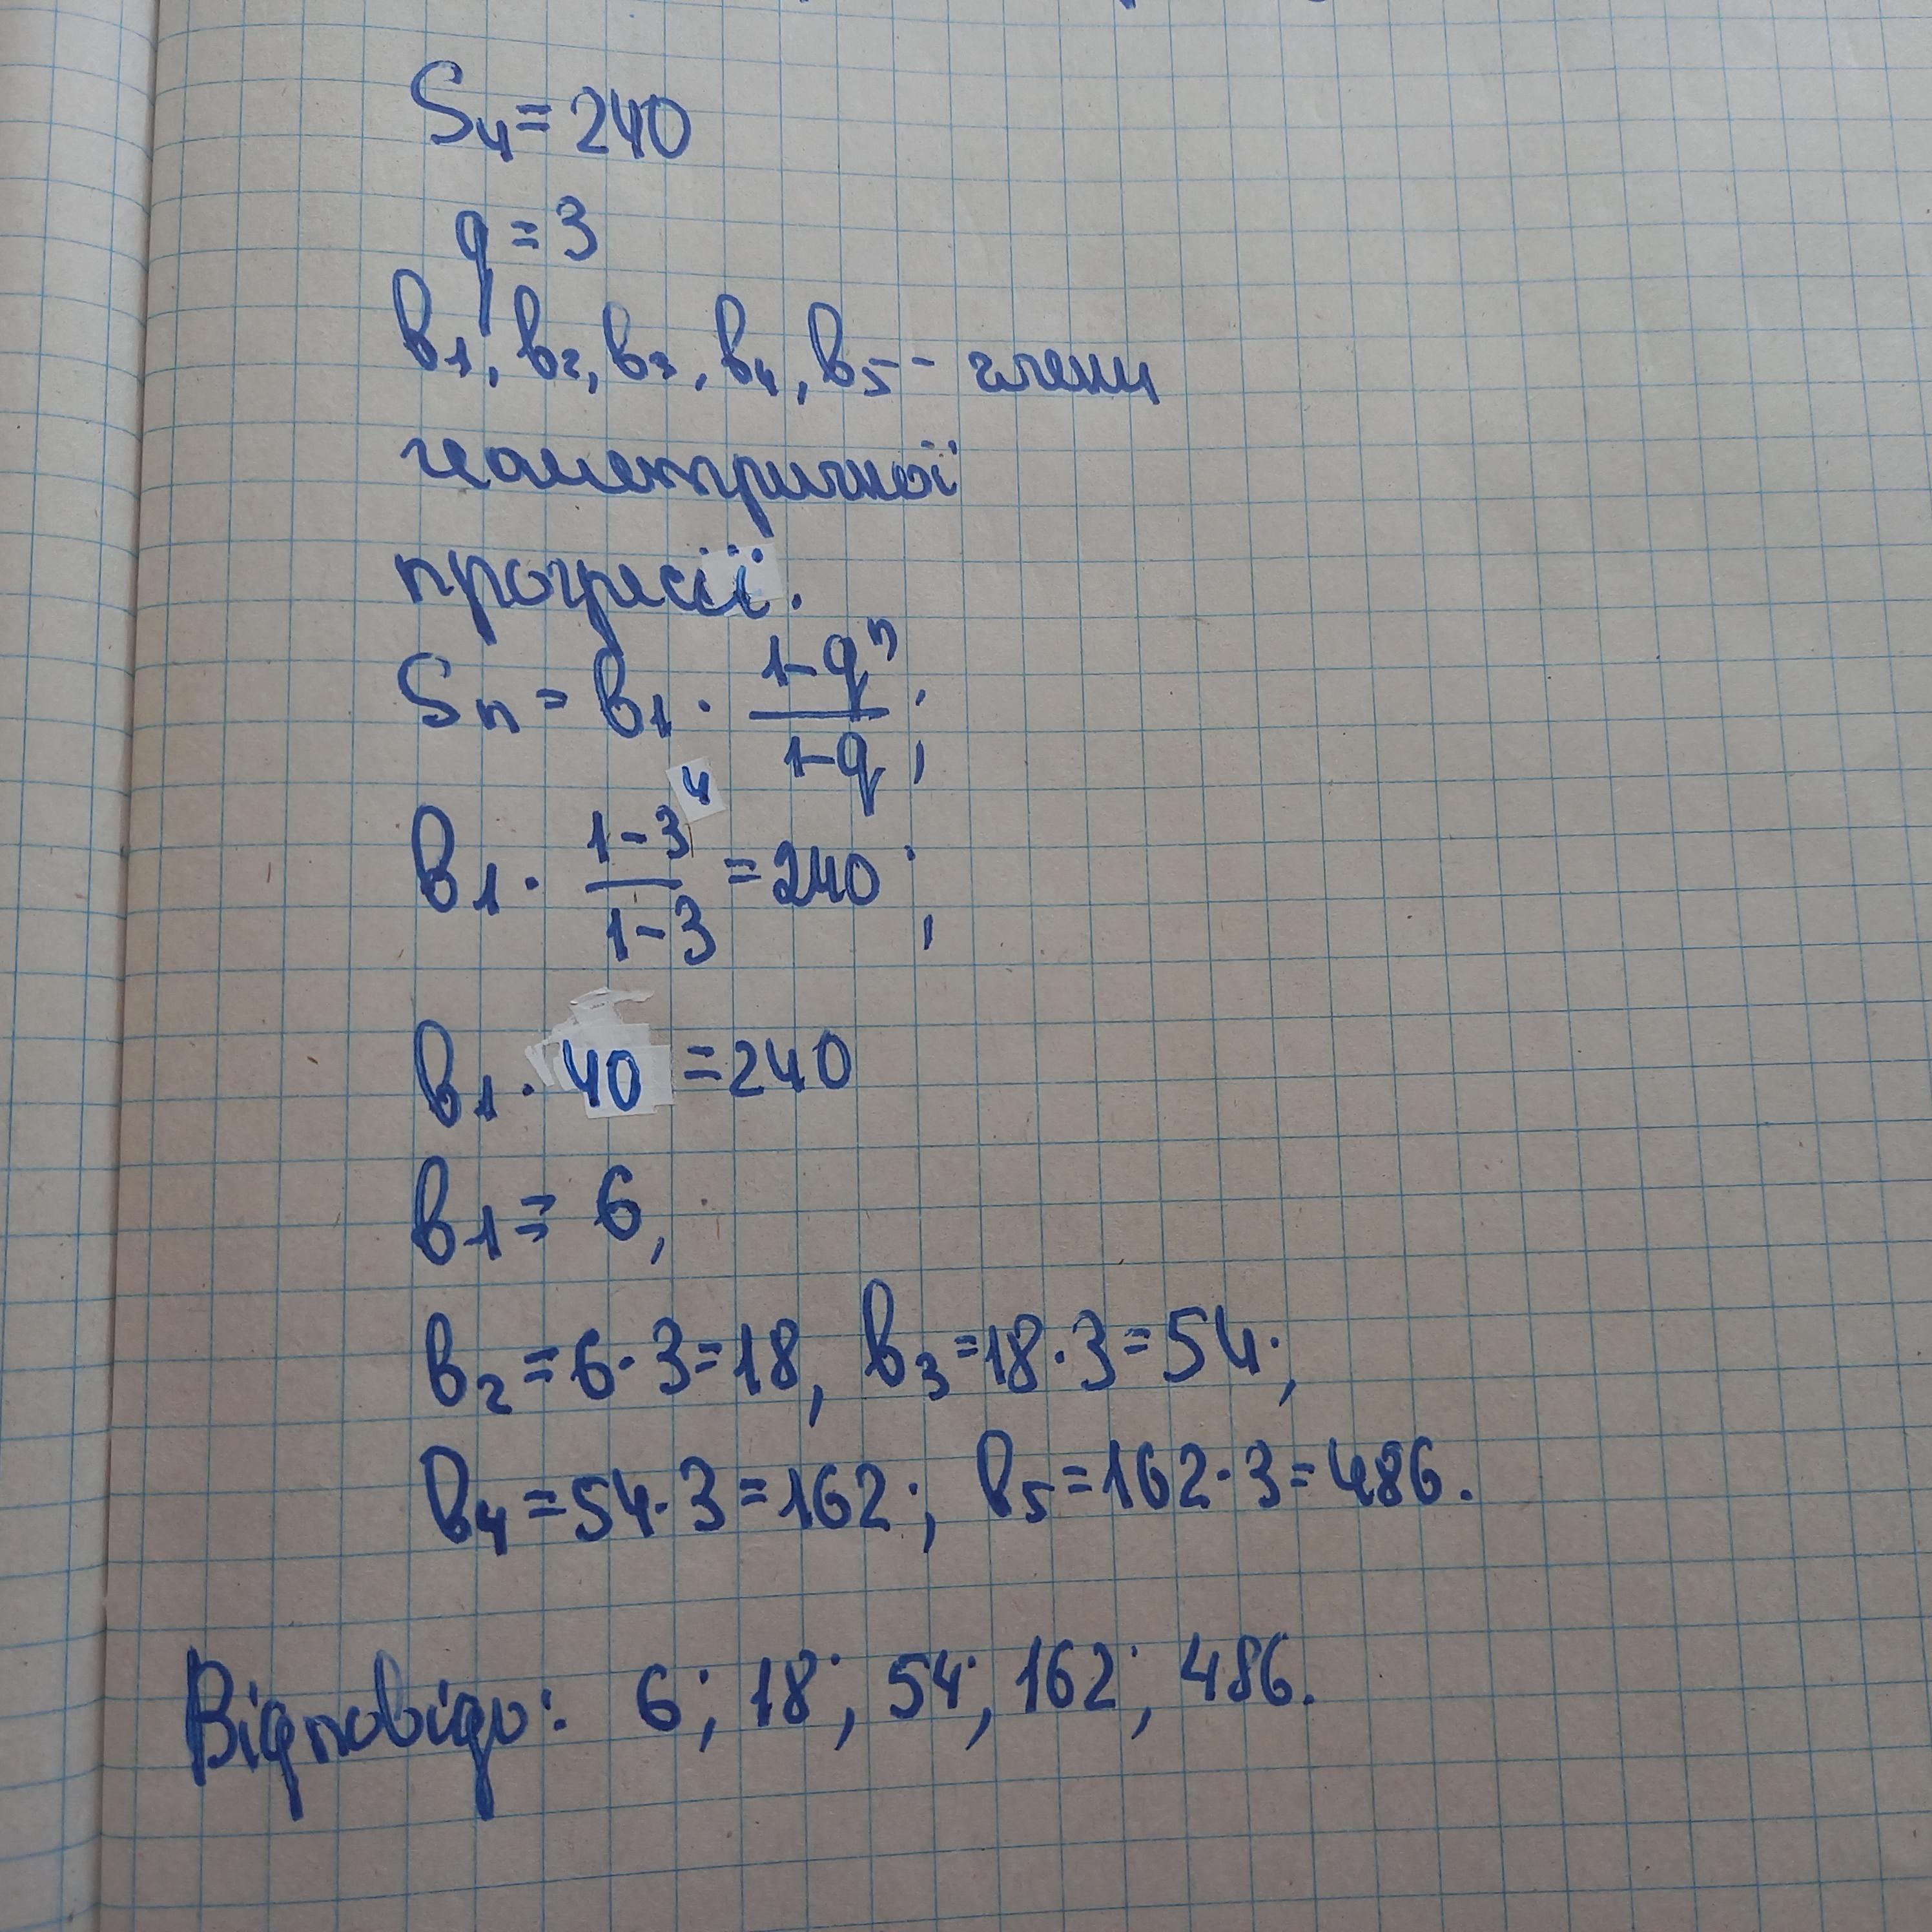 S₄ = 240
q = 3
b₁, b₂, b₃, b₄, b₅ - члени
геометричної
прогресії.
Sₙ = b₁ · (1-qⁿ)/(1-q);
b₁ · (1-3⁴)/(1-3) = 240;
b₁ · 40 = 240
b₁ = 6,
b₂ = 6·3=18, b₃=18·3=54;
b₄ = 54·3=162; b₅=162·3=486.
Відповідь: 6; 18; 54; 162; 486.